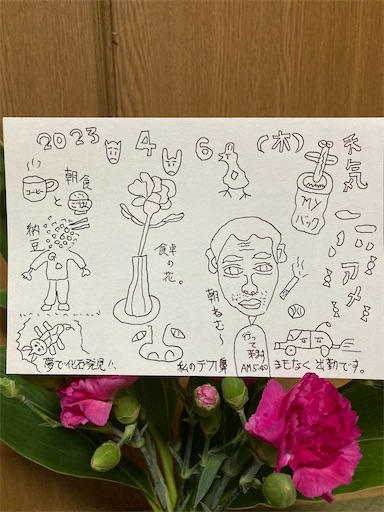 2023 4 6 (木) 天気
アメ
コーヒー
朝食
と
納豆
食卓
の
花。
MY
バック
朝ねむ〜
行って
来ます
AM5:40
夢で化石発見!!
私のデカ鼻
まもなく出勤です。